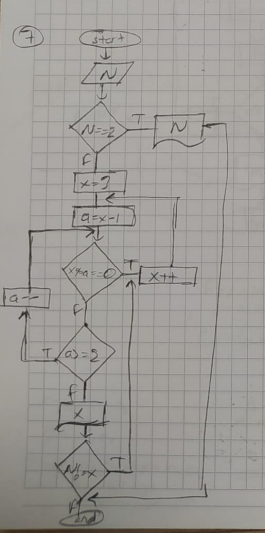 7
start
N
N==2
T
N
F
x=3
a=x-1
x%a==0
T
x++
F
a--
a>=2
T
F
x
T
F
end